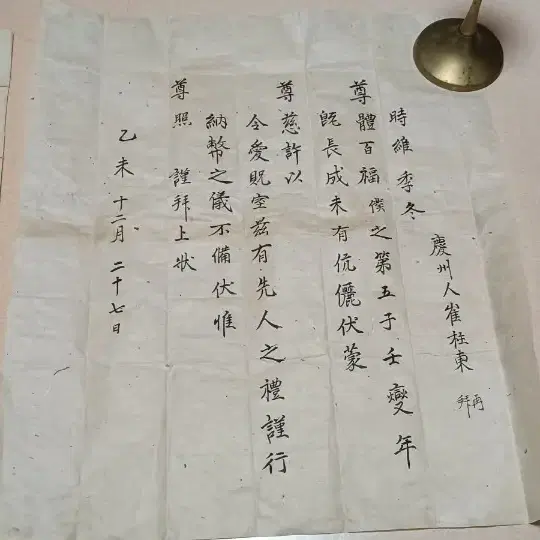 慶州人崔柱東 再拜
時維季冬
尊體百福僕之第五子壬燮年
旣長成未有伉儷伏蒙
尊慈許以
令愛貺室玆有先人之禮謹行
納幣之儀不備伏惟
尊照 謹拜上狀
乙未 十二月 二十七日